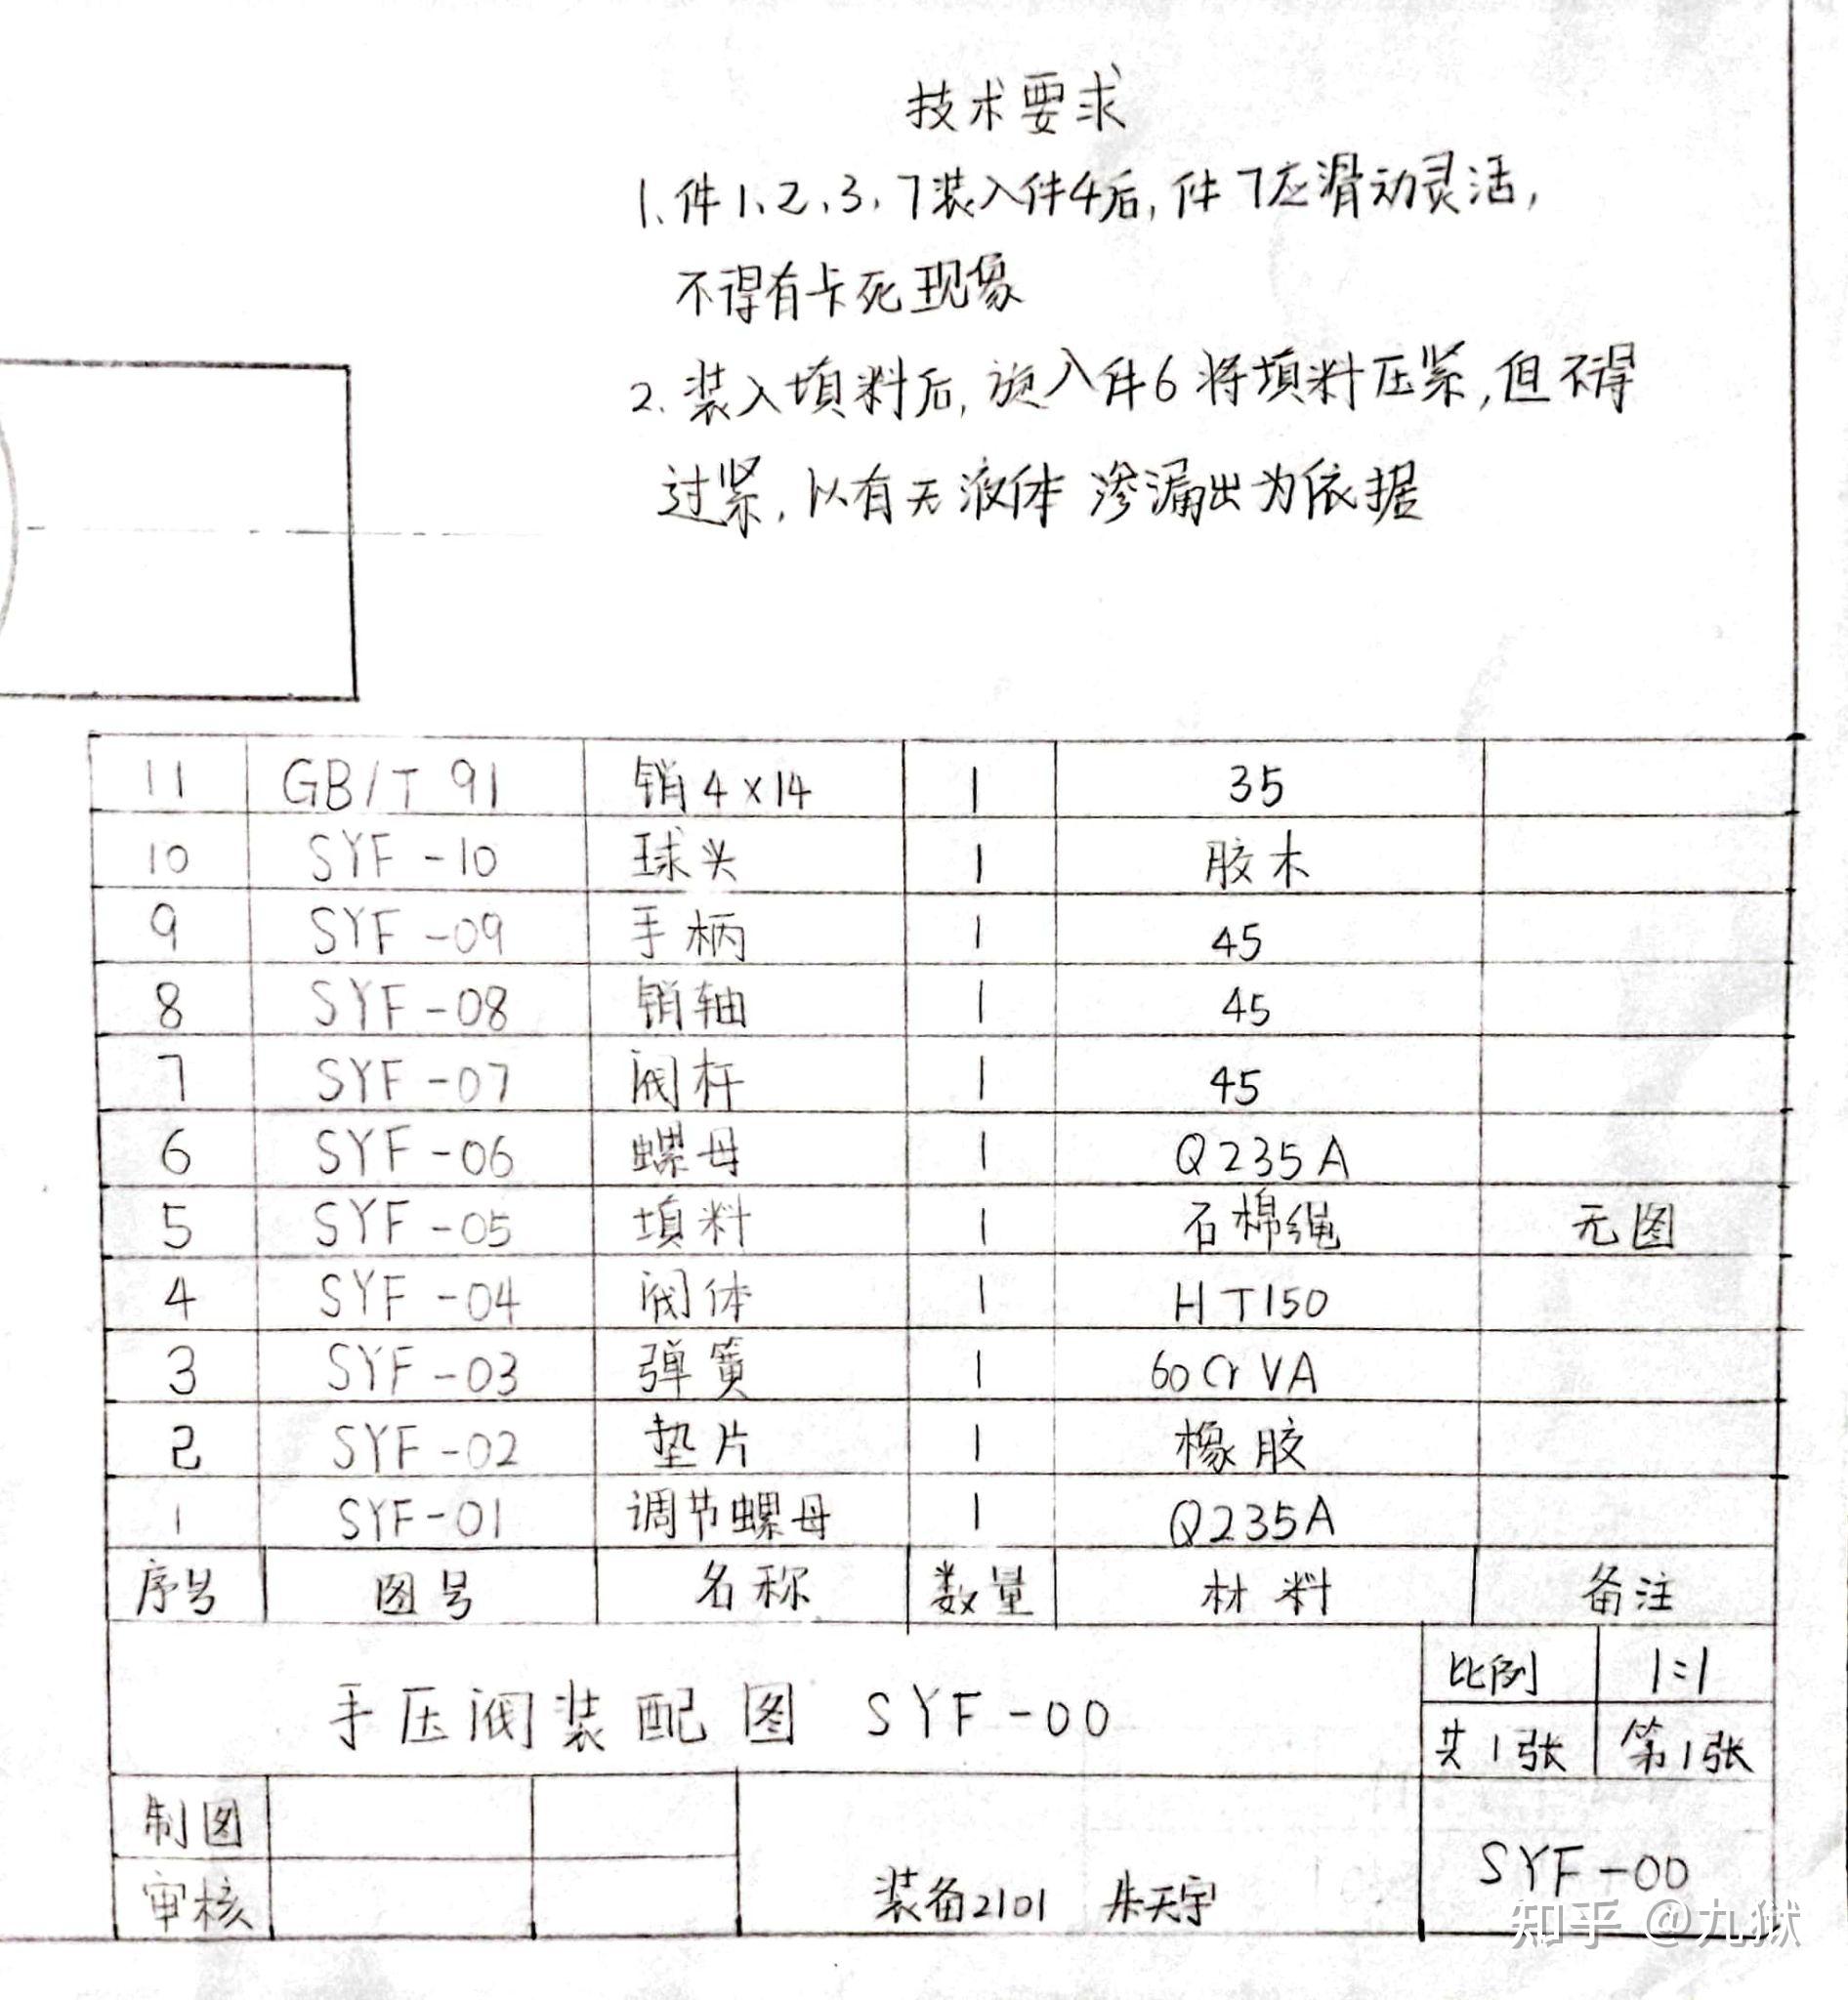 技术要求
1、件1、2、3、7装入件4后,件7应滑动灵活,
不得有卡死现象
2、装入填料后,旋入件6将填料压紧,但不得
过紧,以有无液体渗漏出为依据
11 GB/T 91 销4×14 1 35
10 SYF-10 球头 1 胶木
9 SYF-09 手柄 1 45
8 SYF-08 销轴 1 45
7 SYF-07 阀杆 1 45
6 SYF-06 螺母 1 Q235A
5 SYF-05 填料 1 石棉绳 无图
4 SYF-04 阀体 1 HT150
3 SYF-03 弹簧 1 60CrVA
2 SYF-02 垫片 1 橡胶
1 SYF-01 调节螺母 1 Q235A
序号 图号 名称 数量 材料 备注
手压阀装配图 SYF-00
比例 1:1
共1张 第1张
制图
审核
装备2101 朱天宇
SYF-00
知乎 @九狱